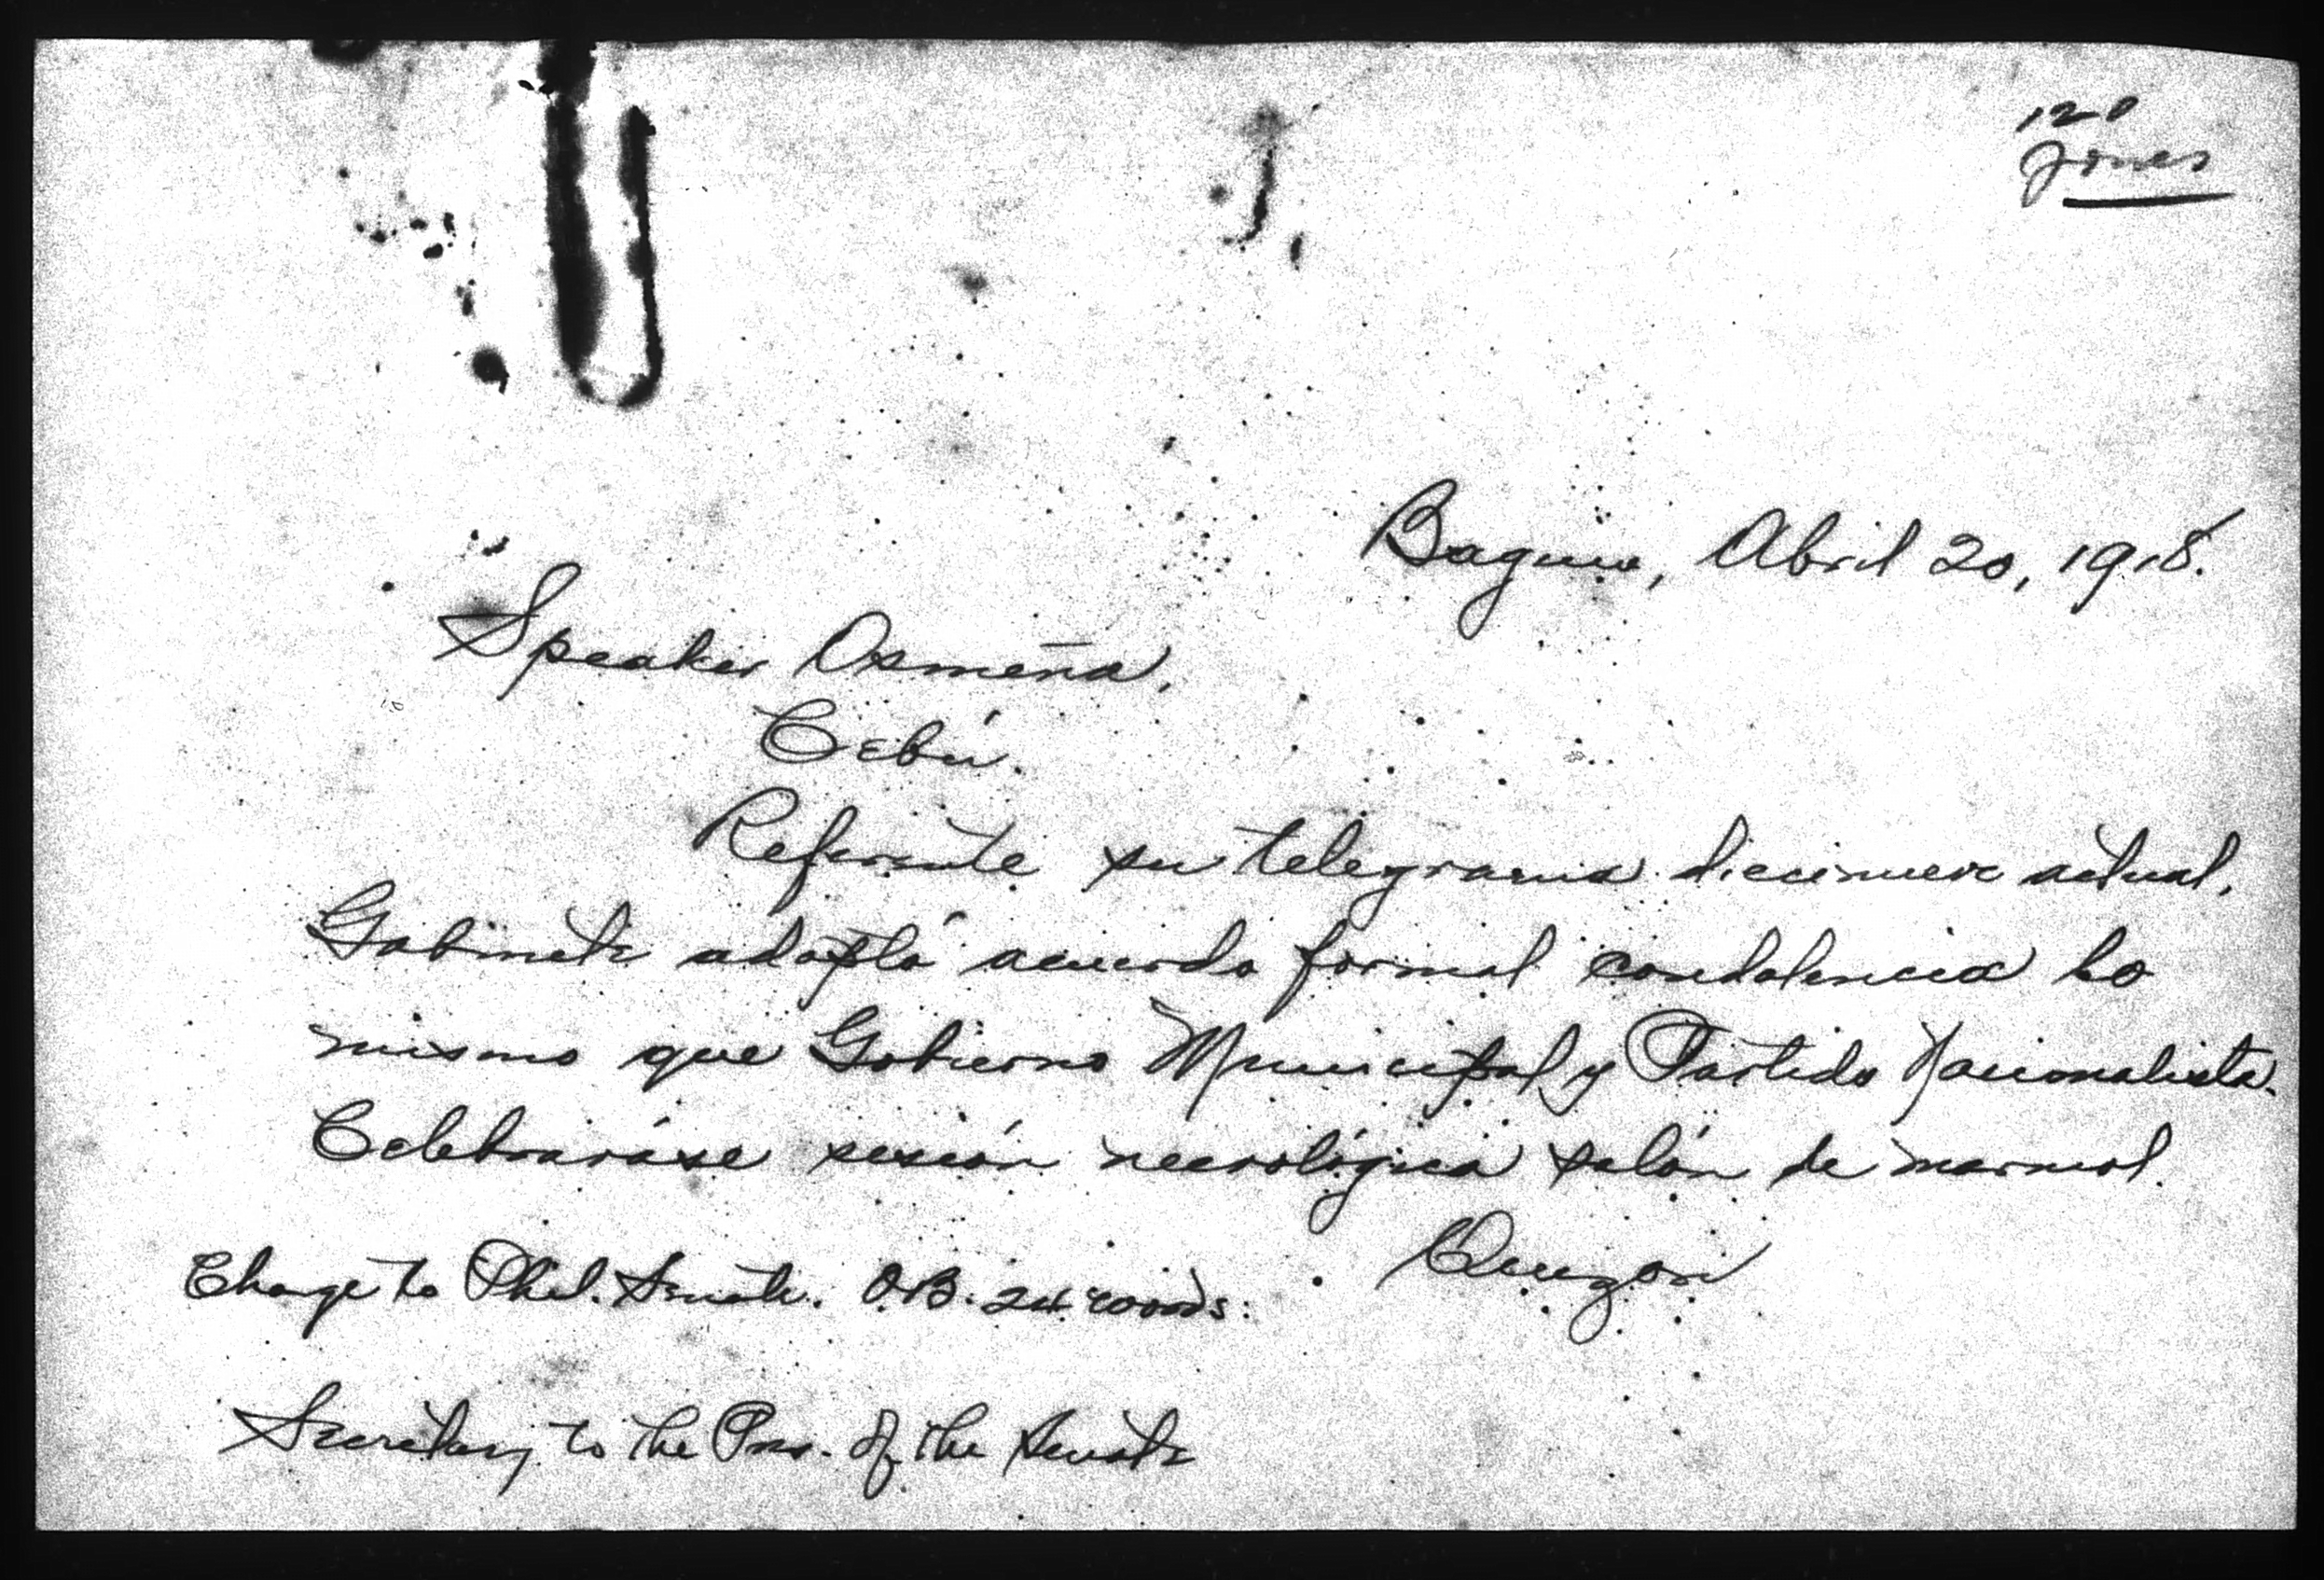 120
Jones
Baguio, Abril 20, 1918.
Speaker Osmeña,
Cebú.
Referente su telegrama diecinueve actual,
Gabinete adoptó acuerdo formal condolencia lo
mismo que Gobierno Municipal y Partido Nacionalista.
Celebraráse sesión necrológica salón de marmol.
Quezon
Charge to Phil. Senate. O.B. 24 words:
Secretary to the Pres. of the Senate